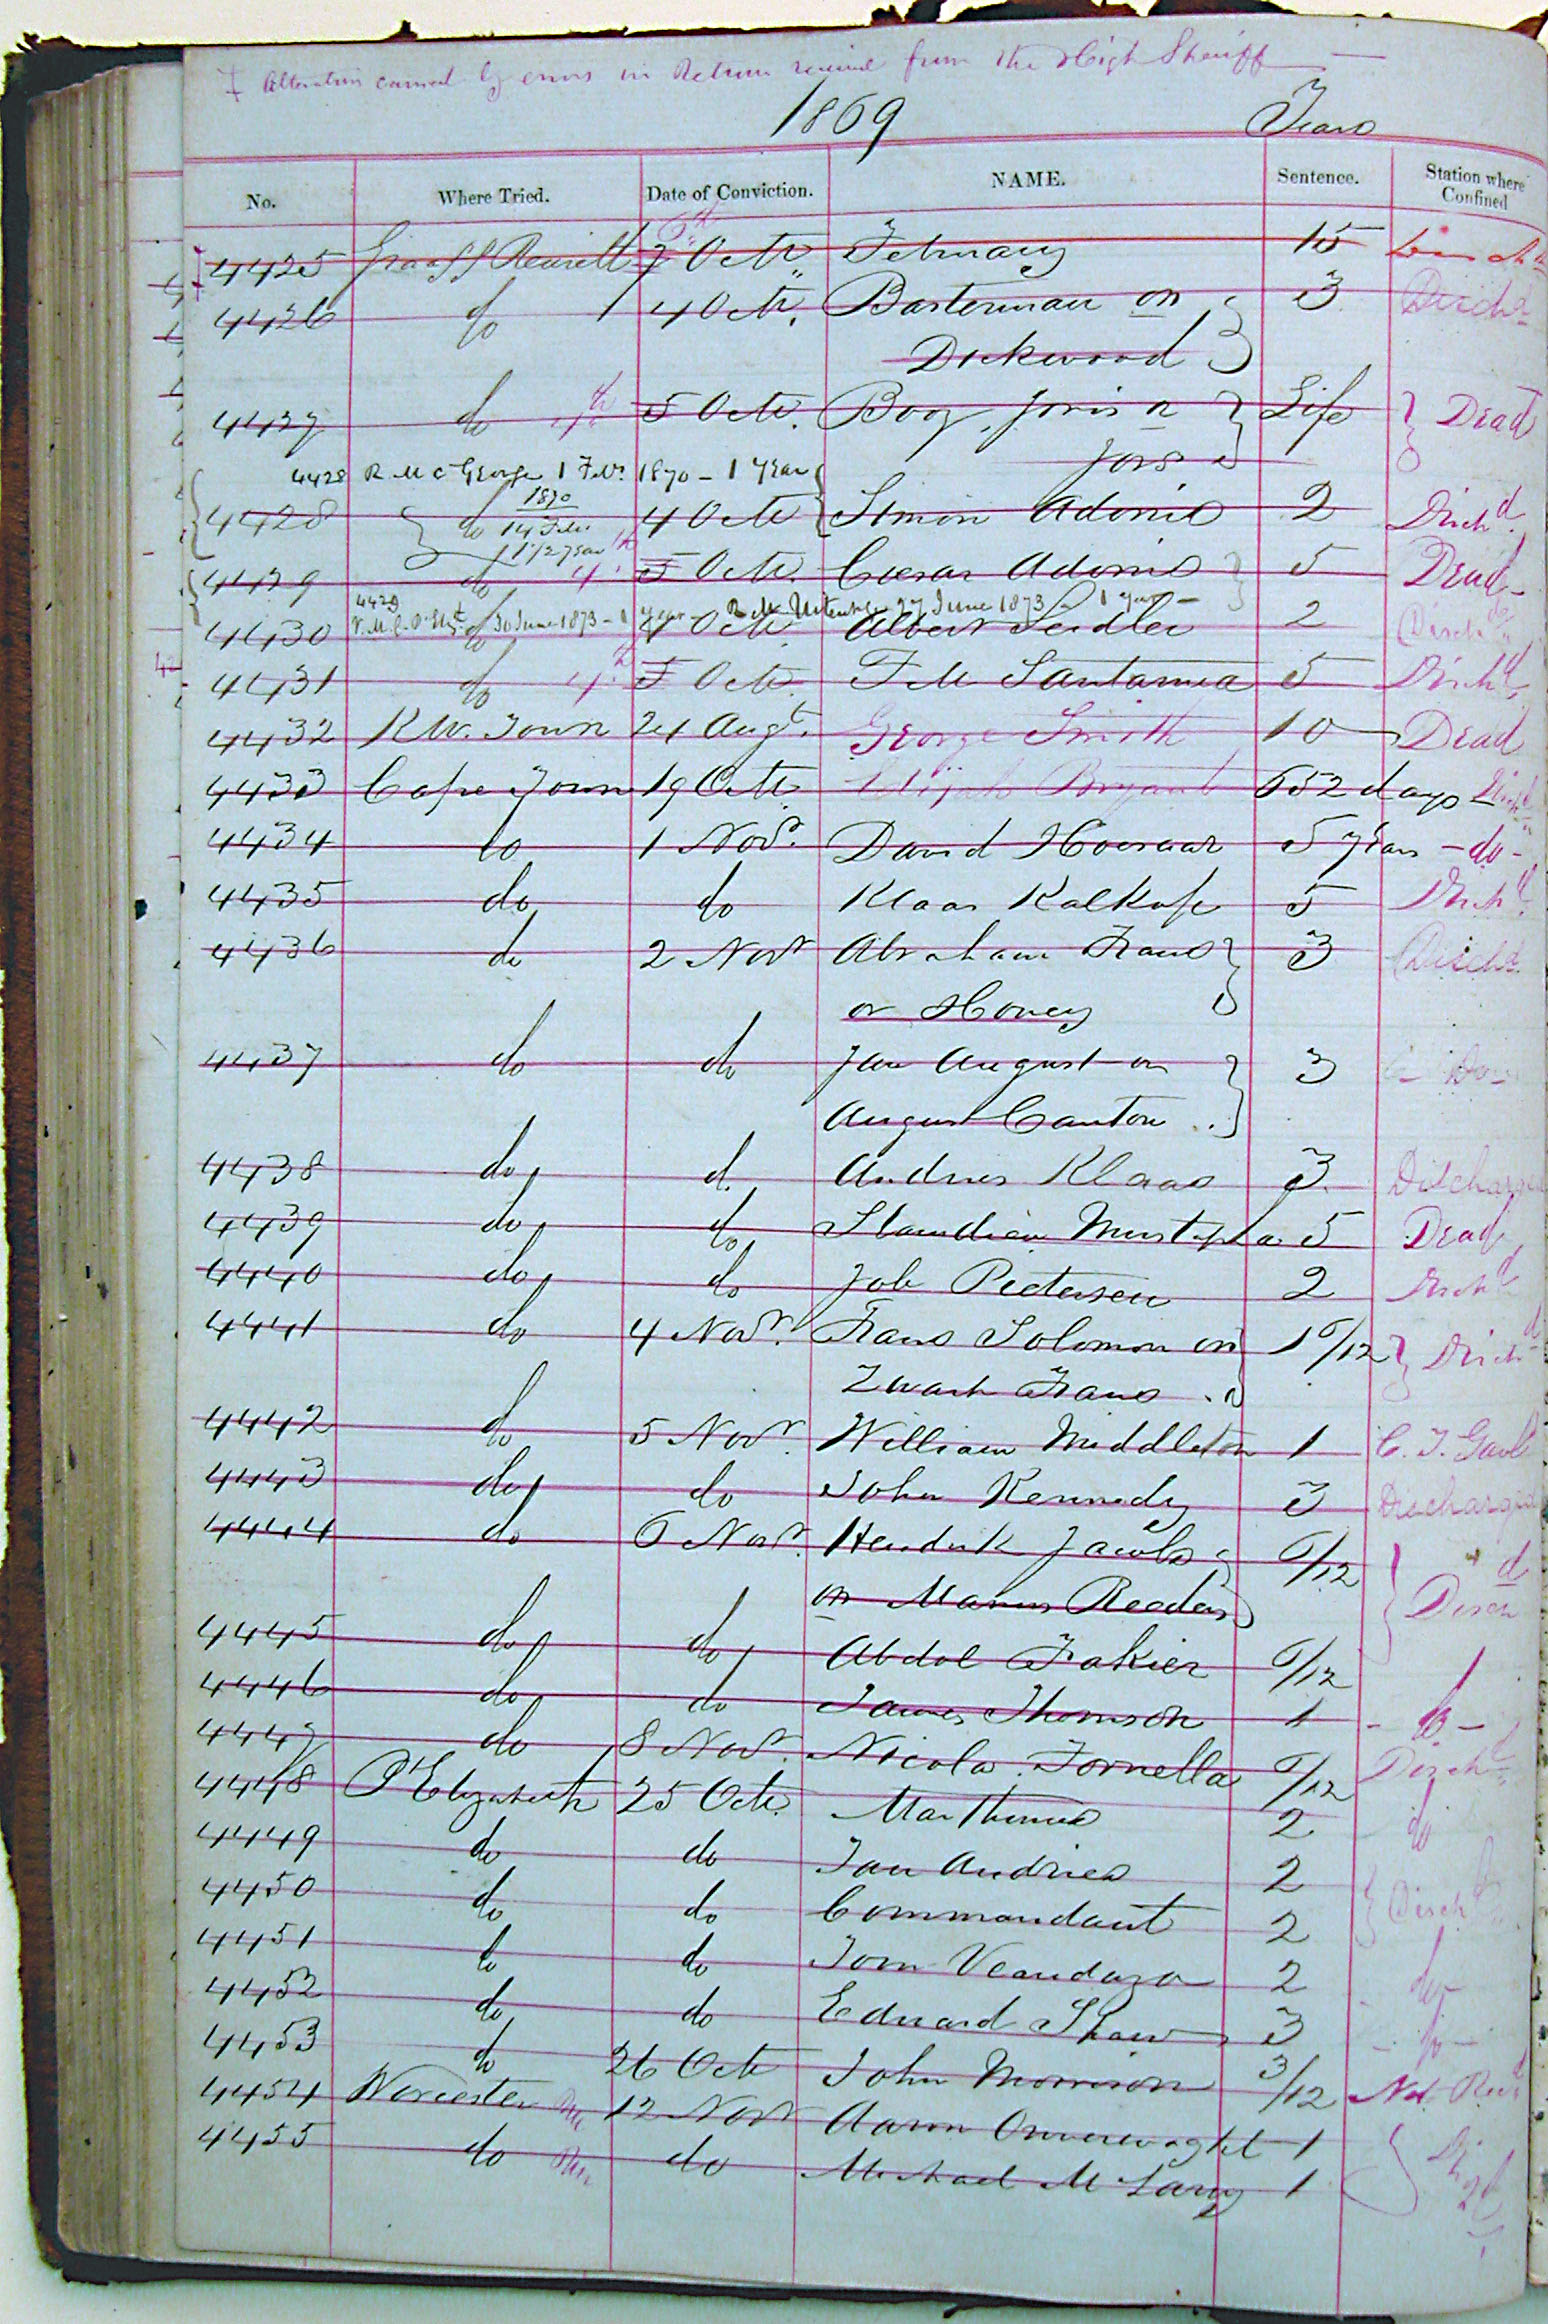 ‡ Alteration caused by error in Return received from the High Sheriff —
1869 Years
No. Where Tried. Date of Conviction. NAME. Sentence. Station where Confined
4425 Graaff Reinett 7 Octr. February 15
4426 do 4 Octr. Basterman or 3 Dischd
Dirkwood
4427 do 4th 5 Octr. Booy, Joris or Life Dead
Jors
4428 R M C George 1 Febr. 1870 – 1 Year
1870
4428 do 14 Febr. 4 Octr Simon Adonis 2 Dischd.
1 1/2 year
4429 do 4th 5 Octr. Caesar Adonis 5 Dead
4429 P. Elizt. 30 June 1873 – 1 year – R.M. Uitenhge 27 June 1873 – 1 year –
4430 do 4 Octr. Albert Seidler 2 Dischd
4431 do 4th 5 Octr. F M Santamea 5 Dischd
4432 K W. Town 24 Augt. George Smith 10 Dead
4433 Cape Town 19 Octr. Elijah Bryant 652 days Dischd
4434 do 1 Novr. David 5 years – do –
4435 do do Klaas Kalkofe 5 Dischd.
4436 do 2 Novr Abraham Frans 3 Dischd.
or Honey
4437 do do Jan August or 3 – Do –
August Canton
4438 do do Andries Klaas 3 Discharged
4439 do do Mustapha 5 Dead
4440 do do Job Pietersen 2 Dischd
4441 do 4 Novr. Frans Solomon or 1 6/12 Dischd
Zwart Frans
4442 do 5 Novr. William Middleton 1 C. T. Gaol
4443 do do John Kennedy 3 Discharged
4444 do 6 Novr. Hendrik Jacobs 6/12 Dischd
or Manus Reeders
4445 do do Abdol Fakier 6/12
4446 do do James Thomson 1 – do –
4447 do 8 Novr. Nicola Fornella 6/12 Dischd
4448 P Elizabeth 25 Octr. Marthinus 2 do
4449 do do Jan Andries 2
4450 do do Commandant 2 Dischd
4451 do do Tom Veandaza 2 – do –
4452 do do Edward Shaw 3 – do –
4453 do 26 Octr John Morrison 3/12 Not Recd
4454 Worcester 12 Novr Aaron Onverwaght 1
4455 do do Michael McLary 1 Dischd